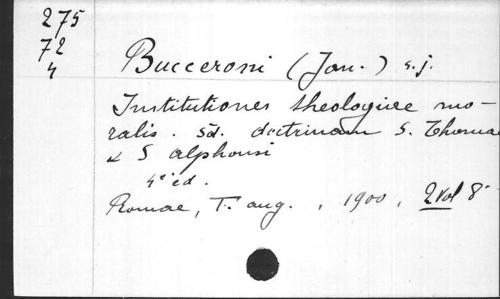 275
72
4
Bucceroni (Jan.) s.j.
Institutiones theologiae mo-
ralis. sd. doctrinam S. Thomae
& S alphonsi
4e ed.
Romae, T. aug., 1900, 2 vol 8°